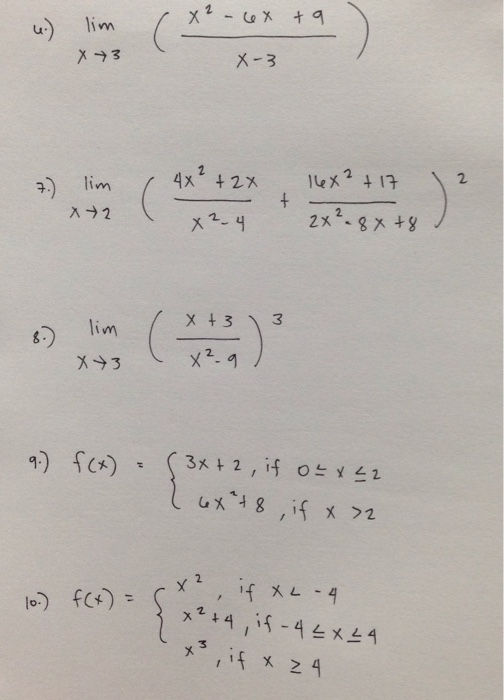 6.) lim x→3 ( (x² - 6x + 9) / (x-3) )
7.) lim x→2 ( (4x² + 2x) / (x² - 4) + (16x² + 17) / (2x² - 8x + 8) )²
8.) lim x→3 ( (x + 3) / (x² - 9) )³
9.) f(x) = { 3x + 2, if 0 ≤ x ≤ 2
6x² + 8, if x > 2
10.) f(x) = { x², if x < -4
x² + 4, if -4 ≤ x ≤ 4
x³, if x ≥ 4